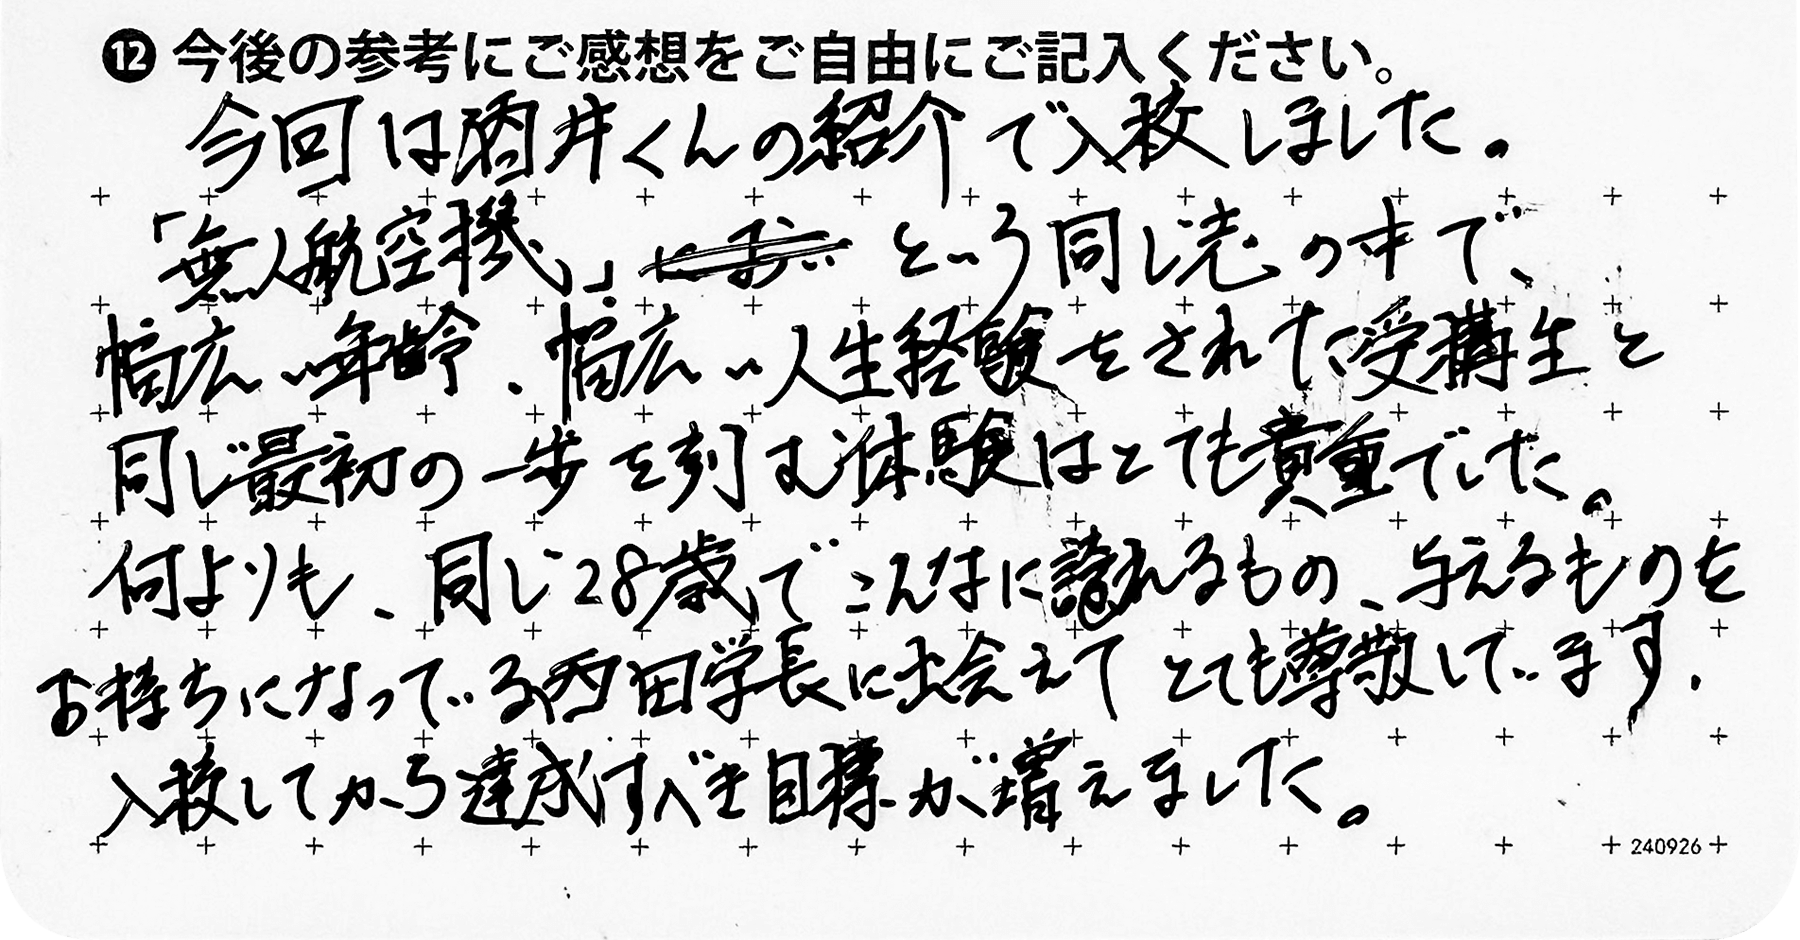 ⓬ 今後の参考にご感想をご自由にご記入ください。
今回は酒井くんの紹介で入校しました。
「無人航空機」という同じ志の中で、
幅広い年齢、幅広い人生経験をされた受講生と
同じ最初の一歩を刻む体験はとても貴重でした。
何よりも、同じ28歳でこんなに誇れるもの、与えるものを
お持ちになっている西田学長に出会えてとても尊敬しています.
入校してから達成すべき目標が増えました。
240926